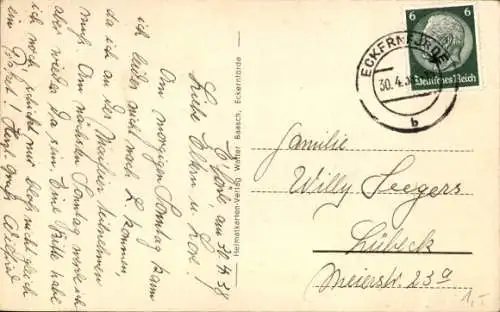 E'förde, am 30.4.38
Liebe Eltern und Lore!
Am morgigen Sonntag kann
ich leider nicht nach L. kommen,
da ich an der Maifeier teilnehmen
muß. Am nächsten Sonntag werde ich
aber wieder da sein. Eine Bitte habe
ich noch, schickt mir bloß nicht gleich
ein Paket. Herzl. Gruß Wilfried
Heimatkarten-Verlag Walter Baasch, Eckernförde
ECKERNFÖRDE
30.4.3
b
6 6
Deutsches Reich
Familie
Willy Seegers
Lübeck
Meierstr. 23a
1,-